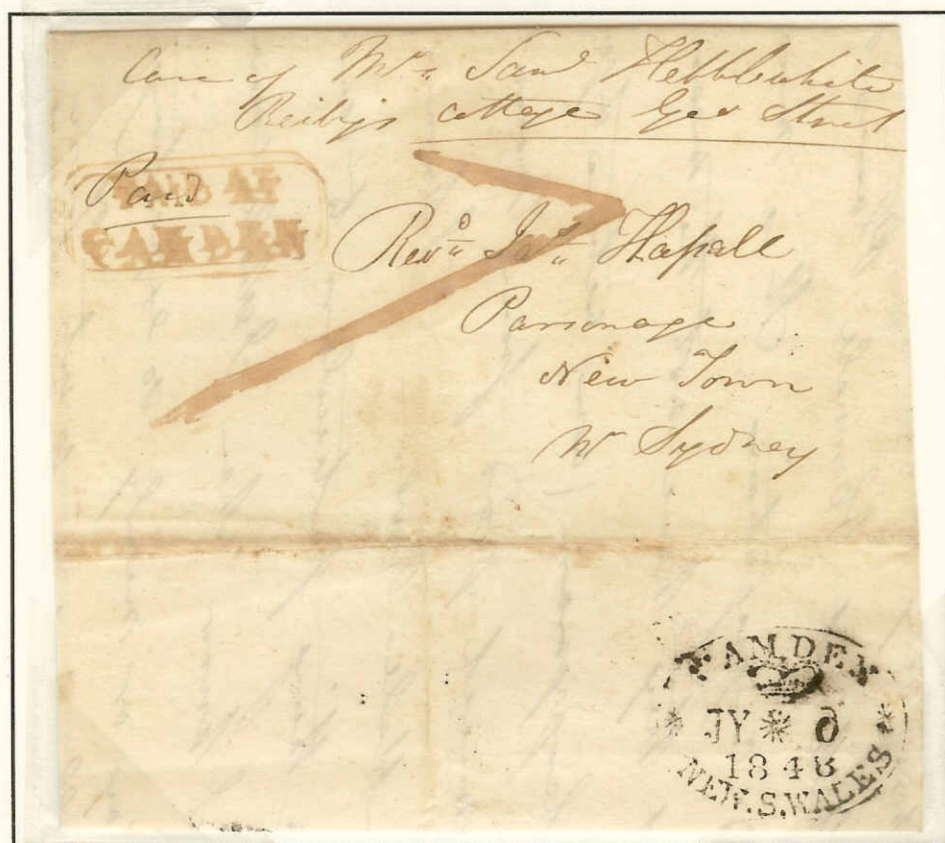 Care of Mr. Saml Hebblewhite
Reibys cottage Geo Street
Paid
PAID AT
CAMDEN
Revd. Jas. Hassall
Parsonage
New Town
Nr Sydney
CAMDEN
JY * 6
1848
NEW.S.WALES